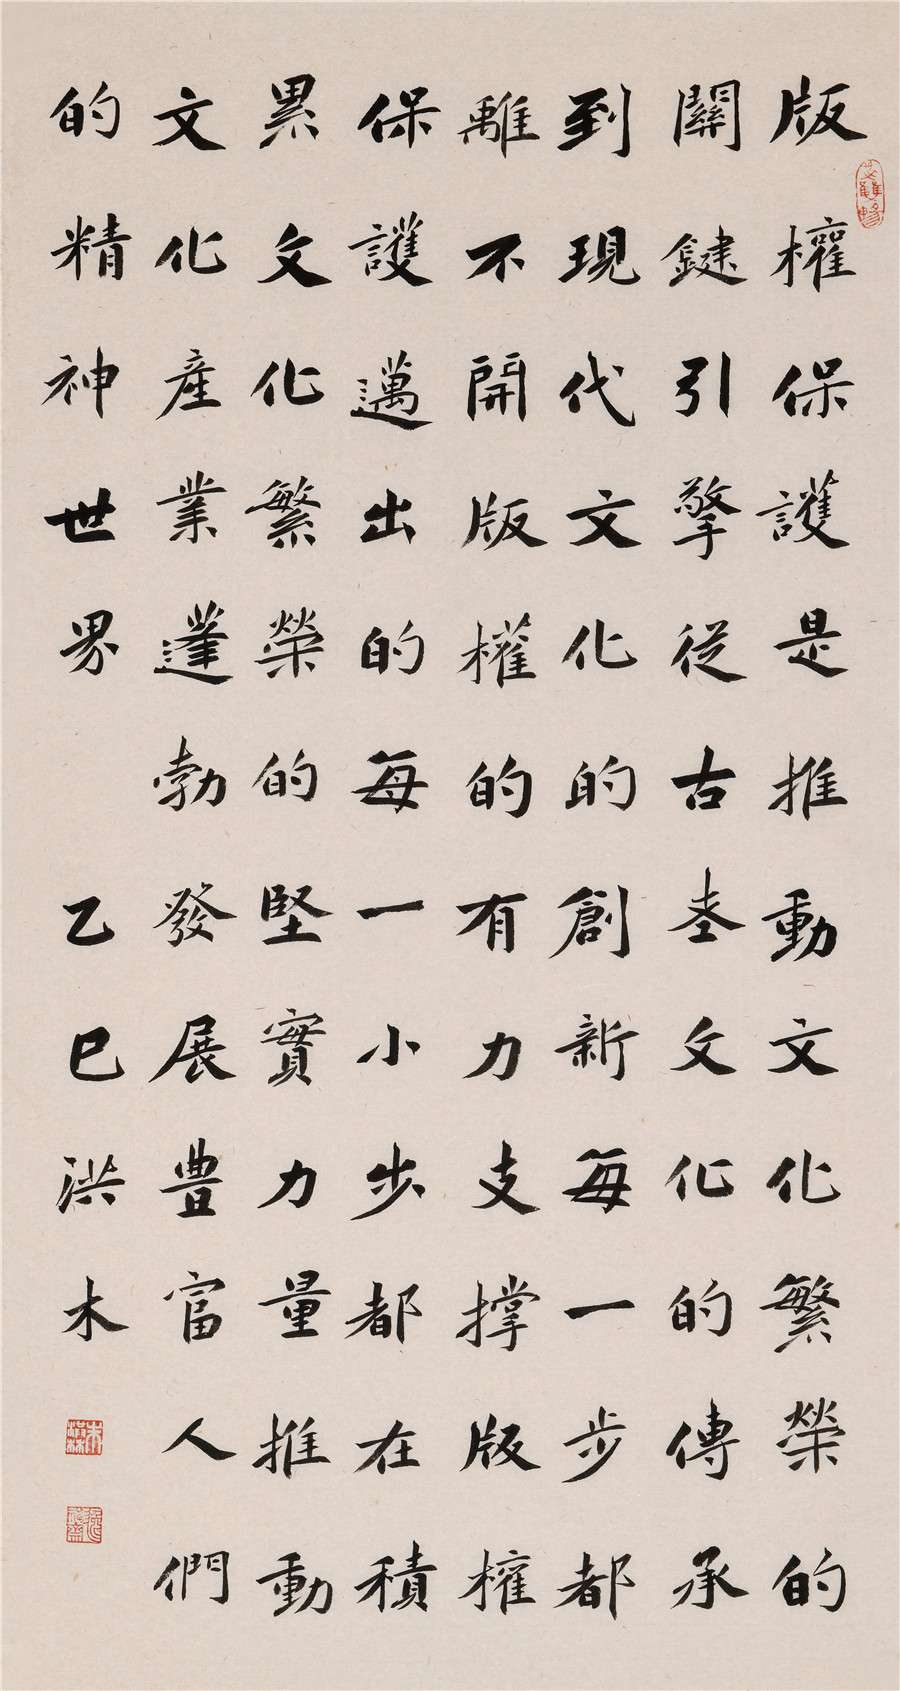 版權保護是推動文化繁榮的
關鍵引擎從古老文化的傳承
到現代文化的創新每一步都
離不開版權的有力支撐版權
保護邁出的每一小步都在積
累文化繁榮的堅實力量推動
文化產業蓬勃發展豊富人們
的精神世界 乙巳洪木